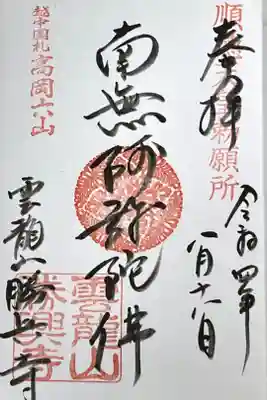 奉拝
令和四年
八月十六日
南無阿弥陀佛
越中国札
高岡六山
雲龍山
勝興寺
雲龍山勝興寺
勅願所